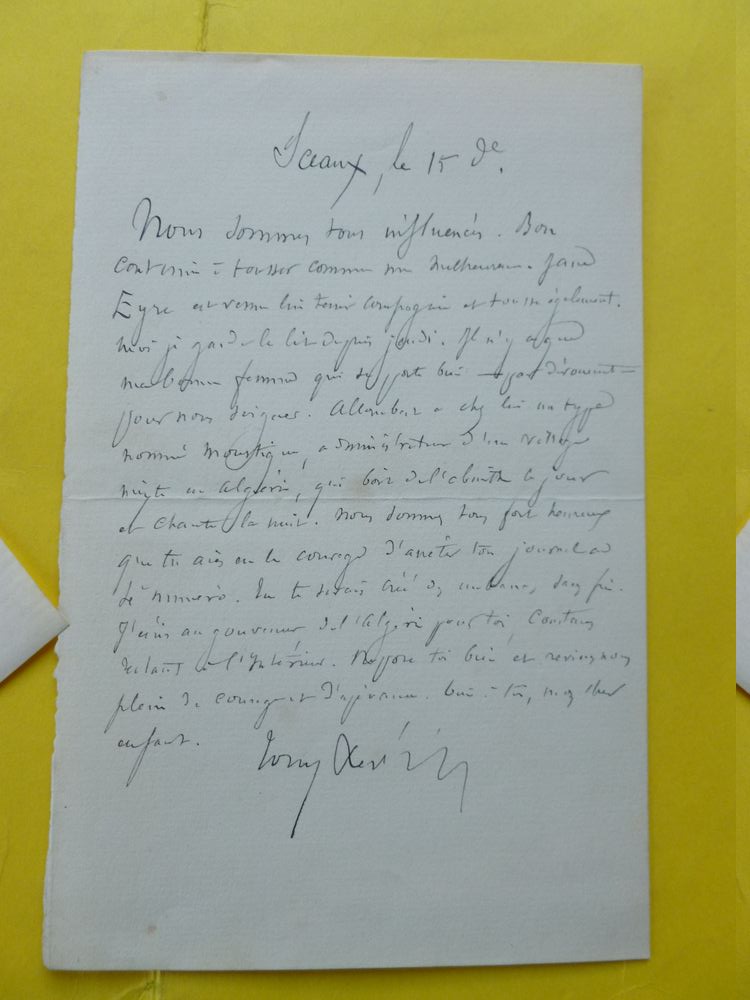 Sceaux, le 15 de.
Nous sommes tous influencés. Bon
continue à tousser comme un malheureux. Jane
Eyre est venue lui tenir compagnie et tousse également.
moi je garde le lit depuis jeudi. Il n'y a que
ma bonne femme qui se porte bien par dévouement
pour nous soigner. a chez lui un type
nommé Moustique, administrateur d'un village
mixte en Algérie, qui boit de l'absinthe le jour
et chante la nuit. Nous sommes tous fort heureux
que tu aies eu le courage d'arrêter ton journal au
numéro. Tu te serais créé des sans fin.
J'écris au gouverneur de l'Algérie pour toi, Constans
étant à l'Intérieur. Repose toi bien et reviens nous
plein de courage et d'espérance. bien à toi, mon cher
enfant.
Tony Révillon